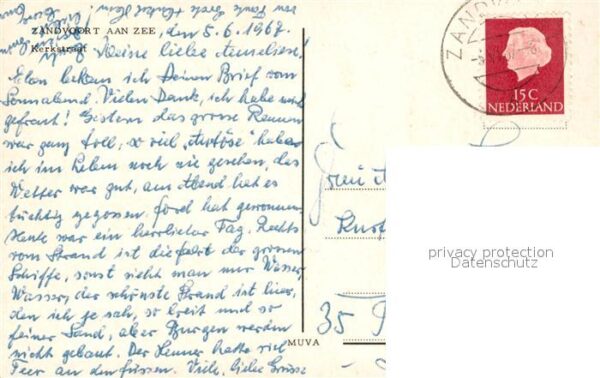 ZANDVOORT AAN ZEE, den 5.6.1967.
Kerkstraat
Meine liebe
Eben bekam ich Deinen Brief vom
Sonnabend. Vielen Dank, ich habe mich
gefreut! Gestern das grosse Rennen
war ganz toll, so viel „Autöse" habe
ich im Leben noch nie gesehen, das
Wetter war gut, am Abend hat es
tüchtig gegossen. Ford hat gewonnen.
Heute war ein herrlicher Tag. Rechts
vom Strand ist die Fahrt der grossen
Schiffe, sonst sieht man nur Wasser,
Wasser, der schönste Strand ist hier,
den ich je sah, so breit und so
feiner Sand, aber Burgen werden
nicht gebaut. Der Henner hatte viel
Teer an den Füssen. Viele, liebe Grüsse
MUVA
ZANDV
15 C
NEDERLAND
35
privacy protection
Datenschutz